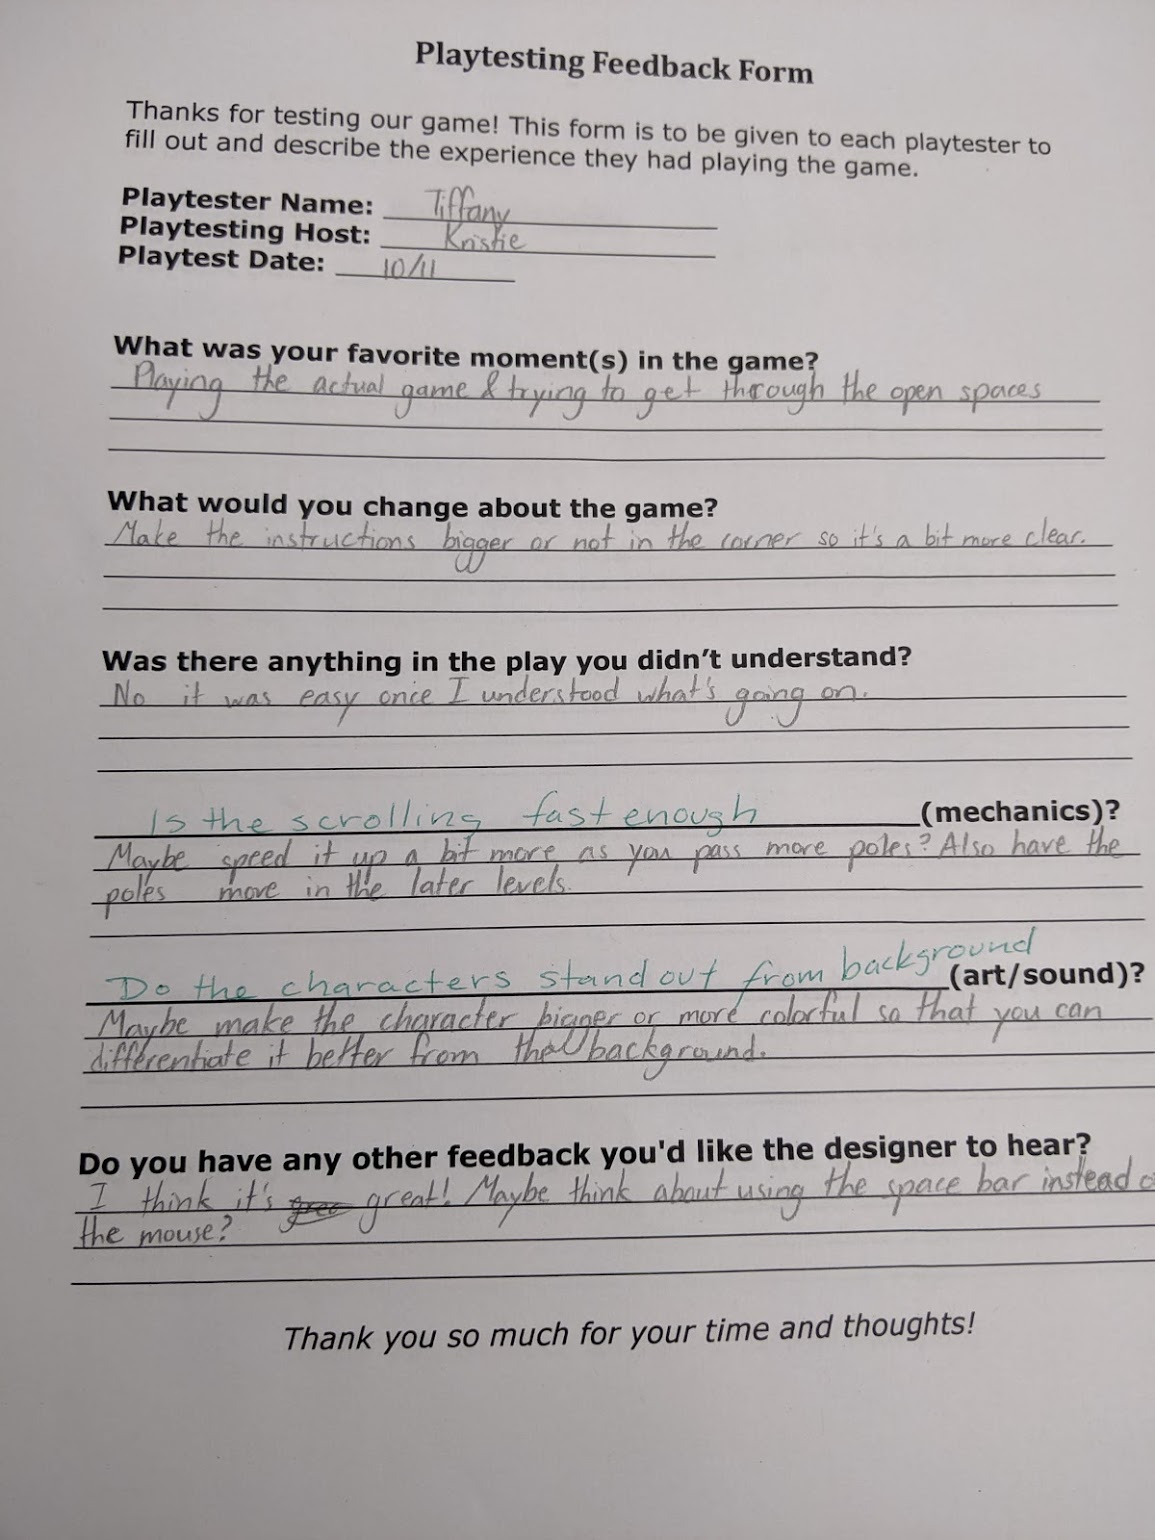 Playtesting Feedback Form
Thanks for testing our game! This form is to be given to each playtester to
fill out and describe the experience they had playing the game.
Playtester Name: Tiffany
Playtesting Host: Kristie
Playtest Date: 10/11
What was your favorite moment(s) in the game?
Playing the actual game & trying to get through the open spaces
What would you change about the game?
Make the instructions bigger or not in the corner so it's a bit more clear.
Was there anything in the play you didn't understand?
No it was easy once I understood what's going on.
Is the scrolling fast enough (mechanics)?
Maybe speed it up a bit more as you pass more poles? Also have the
poles move in the later levels.
Do the characters stand out from background (art/sound)?
Maybe make the character bigger or more colorful so that you can
differentiate it better from the background.
Do you have any other feedback you'd like the designer to hear?
I think it's great! Maybe think about using the space bar instead o
the mouse?
Thank you so much for your time and thoughts!